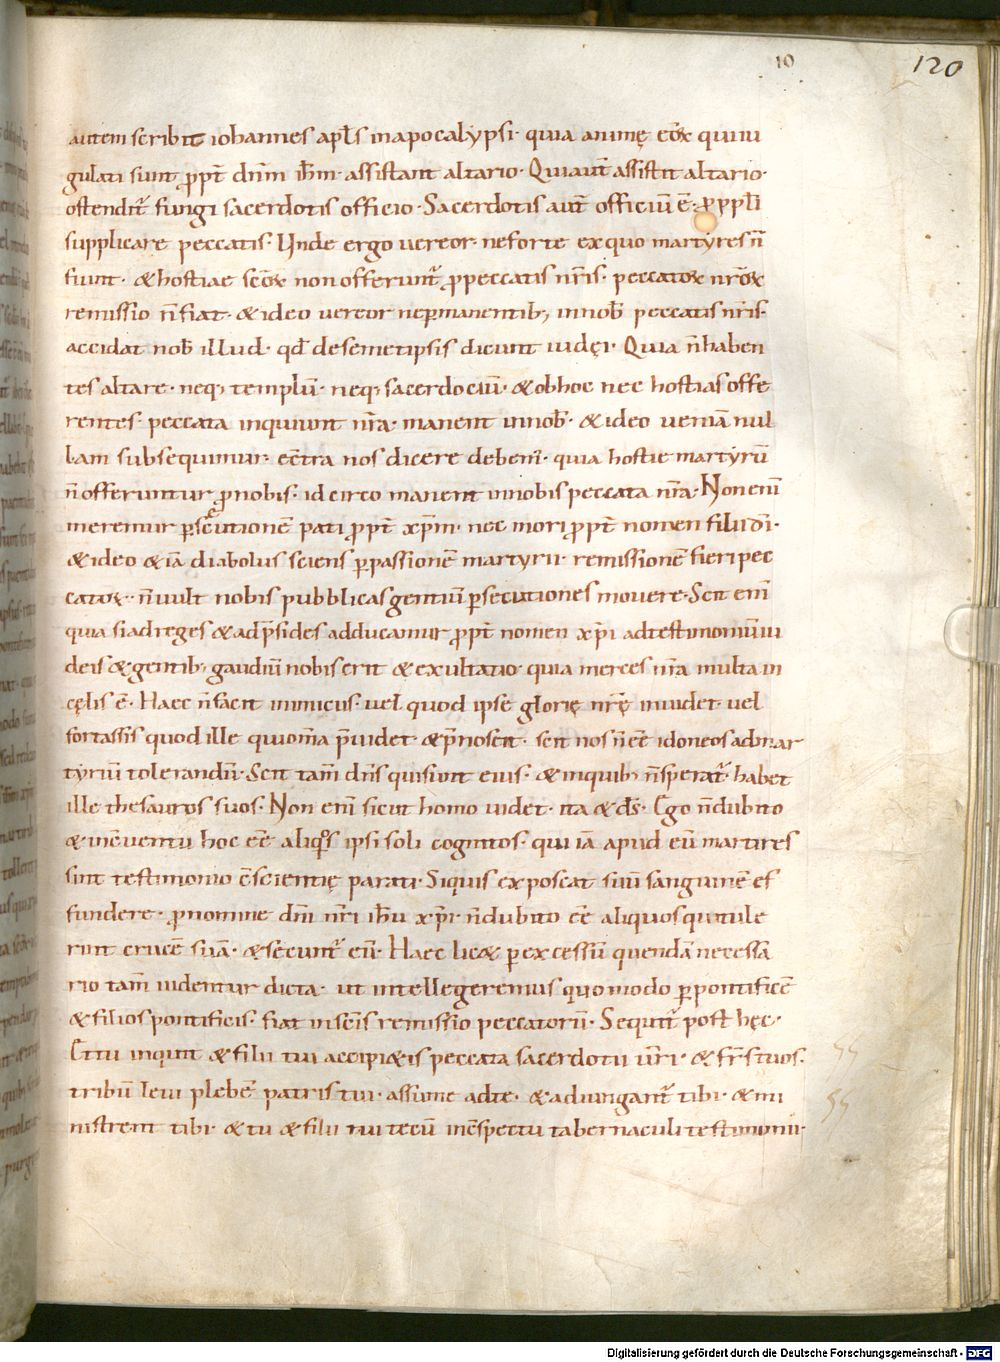 10
120
autem scribit iohannes apl̄s in apocalypsi· quia animę eoꝝ qui iu
gulati sunt ꝓpt̄ dn̄m ih̄m· assistant altario· Qui aut̄ assistit altario·
ostendit̄ fungi sacerdotis officio· Sacerdotis aut̄ officiū ē· ꝓ ppl̄i
supplicare peccatis· Unde ergo uereor· ne forte ex quo martyres n̄
fiunt· & hostiae sc̄oꝝ non offerunt̄ ꝓ peccatis nr̄is· peccatoꝝ nr̄oꝝ
remissio n̄ fiat· & ideo uereor ne ꝑmanentib; in nob̄ peccatis nr̄is·
accidat nob̄ illud· qd̄ de semetipsis dicunt iudęi· Quia n̄ haben
tes altare· neq; templū· neq; sacerdociū· & ob hoc nec hostias offe
rentes· peccata inquiunt nr̄a· manent in nob̄· & ideo ueniā nul
lam subsequimur· ec̄tra nos dicere debem̄· quia hostie martyrū
n̄ offeruntur ꝓ nobis· idcirco manent in nobis peccata nr̄a· Non eni̅
meremur ꝑsecutionē pati ꝓpt̄ xp̄m· nec mori ꝓpt̄ nomen filii dī·
& ideo & iā diabolus sciens ꝑ passionē martyrii· remissionē fieri pec
catoꝝ· n̄ uult nobis pubblicas gentiū ꝑsecutiones mouere· Scit eni̅
quia si ad reges & ad p̄sides adducamur ꝓpt̄ nomen xp̄i ad testimoniū iu
deis & gentib; gaudiū nobis erit & exultatio· quia merces nr̄a multa in
cęlis ē· Haec n̄ facit inimicus· uel quod ipse glorię nr̄ę inuidet· uel
fortassis quod ille qui om̄ia p̄uidet· & p̄noscit· scit nos n̄ ee̅ idoneos ad mar
tyriū tolerandū· Scit tam̄ dn̄s qui sunt eius· & in quib; n̄ sperat̄· habet
ille thesauros suos· Non eni̅ sicut homo uidet· ita & d̄s· Ego n̄ dubito
& in c̄uentu hoc ee̅ aliq̄s ipsi soli cognitos· qui iā apud eū martires
sint testimonio c̄scientię parati· Si quis exposcat suū sanguinē ef
fundere· ꝓ nomine dn̄i nr̄i ih̄u xp̄i· n̄ dubito ee̅ aliquos qui tule
runt crucē suā· & secunt̄ eū· Haec lic& ꝑ excessū quendā necessa
rio tam̄ uidentur dicta· ut intellegeremus quomodo ꝑ pontificē
& filios pontificis· fiat in sc̄is remissio peccatorū· Sequit̄ post hęc·
Et tu inquit & filii tui accipi&is peccata sacerdotii ur̄i· & fr̄s tuos·
tribū leui plebē patris tui· assume ad te· & adiungant̄ tibi· & mi
nistrent tibi· & tu & filii tui tecū in c̄spectu tabernaculi testimonii·
Digitalisierung gefördert durch die Deutsche Forschungsgemeinschaft - DFG